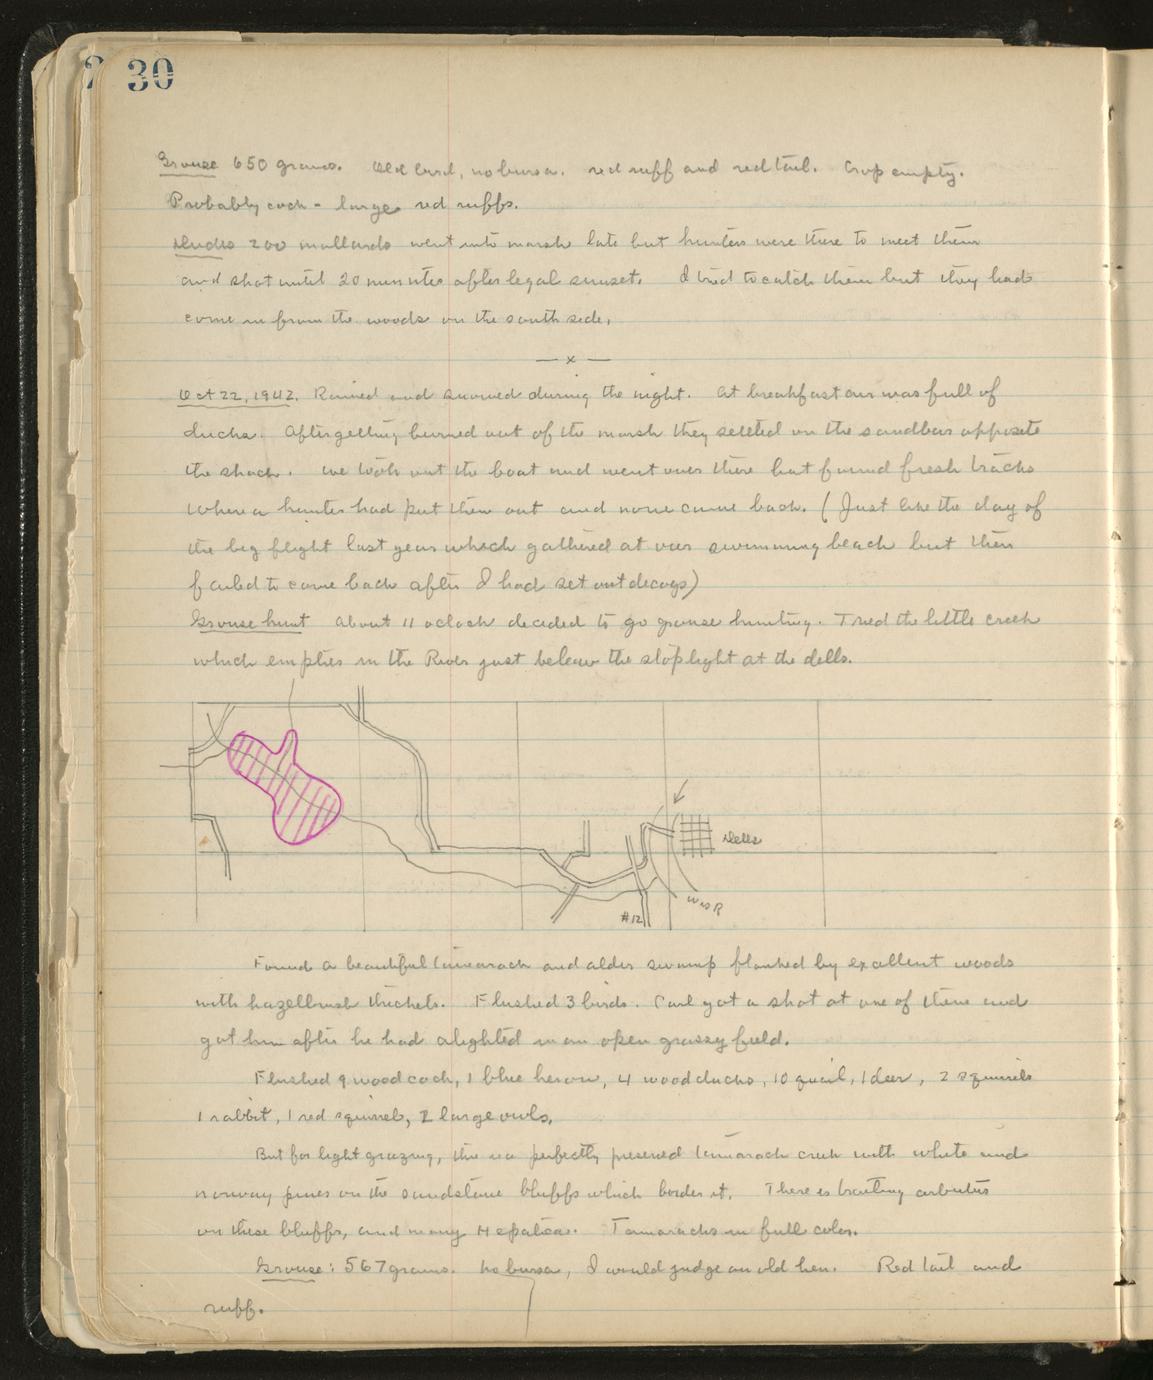 30
Grouse 650 grams. Old bird, no bursa. red ruff and red tail. Crop empty.
Probably cock - large red ruffs.
Ducks 200 mallards went into marsh late but hunters were there to meet them
and shot until 20 minutes after legal sunset. I tried to catch them but they had
come in from the woods on the south side.
— x —
Oct 22, 1942. Rained and snowed during the night. At breakfast air was full of
ducks. After getting burned out of the marsh they settled on the sandbar opposite
the shack. We took out the boat and went over there but found fresh tracks
where a hunter had put them out and none came back. (Just like the day of
the big flight last year which gathered at our swimming beach but then
failed to come back after I had set out decoys)
Grouse hunt About 11 oclock decided to go grouse hunting. Tried the little creek
which empties in the River just below the stoplight at the dells.
Dells
Wis R
#12
Found a beautiful tamarack and alder swamp flanked by excellent woods
with hazelbrush thickets. Flushed 3 birds. Carl got a shot at one of them and
got him after he had alighted in an open grassy field.
Flushed 9 woodcock, 1 blue heron, 4 woodducks, 10 quail, 1 deer, 2 squirrels
1 rabbit, 1 red squirrel, 2 large owls.
But for light grazing, this is a perfectly preserved tamarack creek with white and
norway pines on the sandstone bluffs which border it. There is trailing arbutus
on these bluffs, and many Hepatica. Tamaracks in full color.
Grouse: 567 grams. No bursa, I would judge an old hen. Red tail and
ruff.